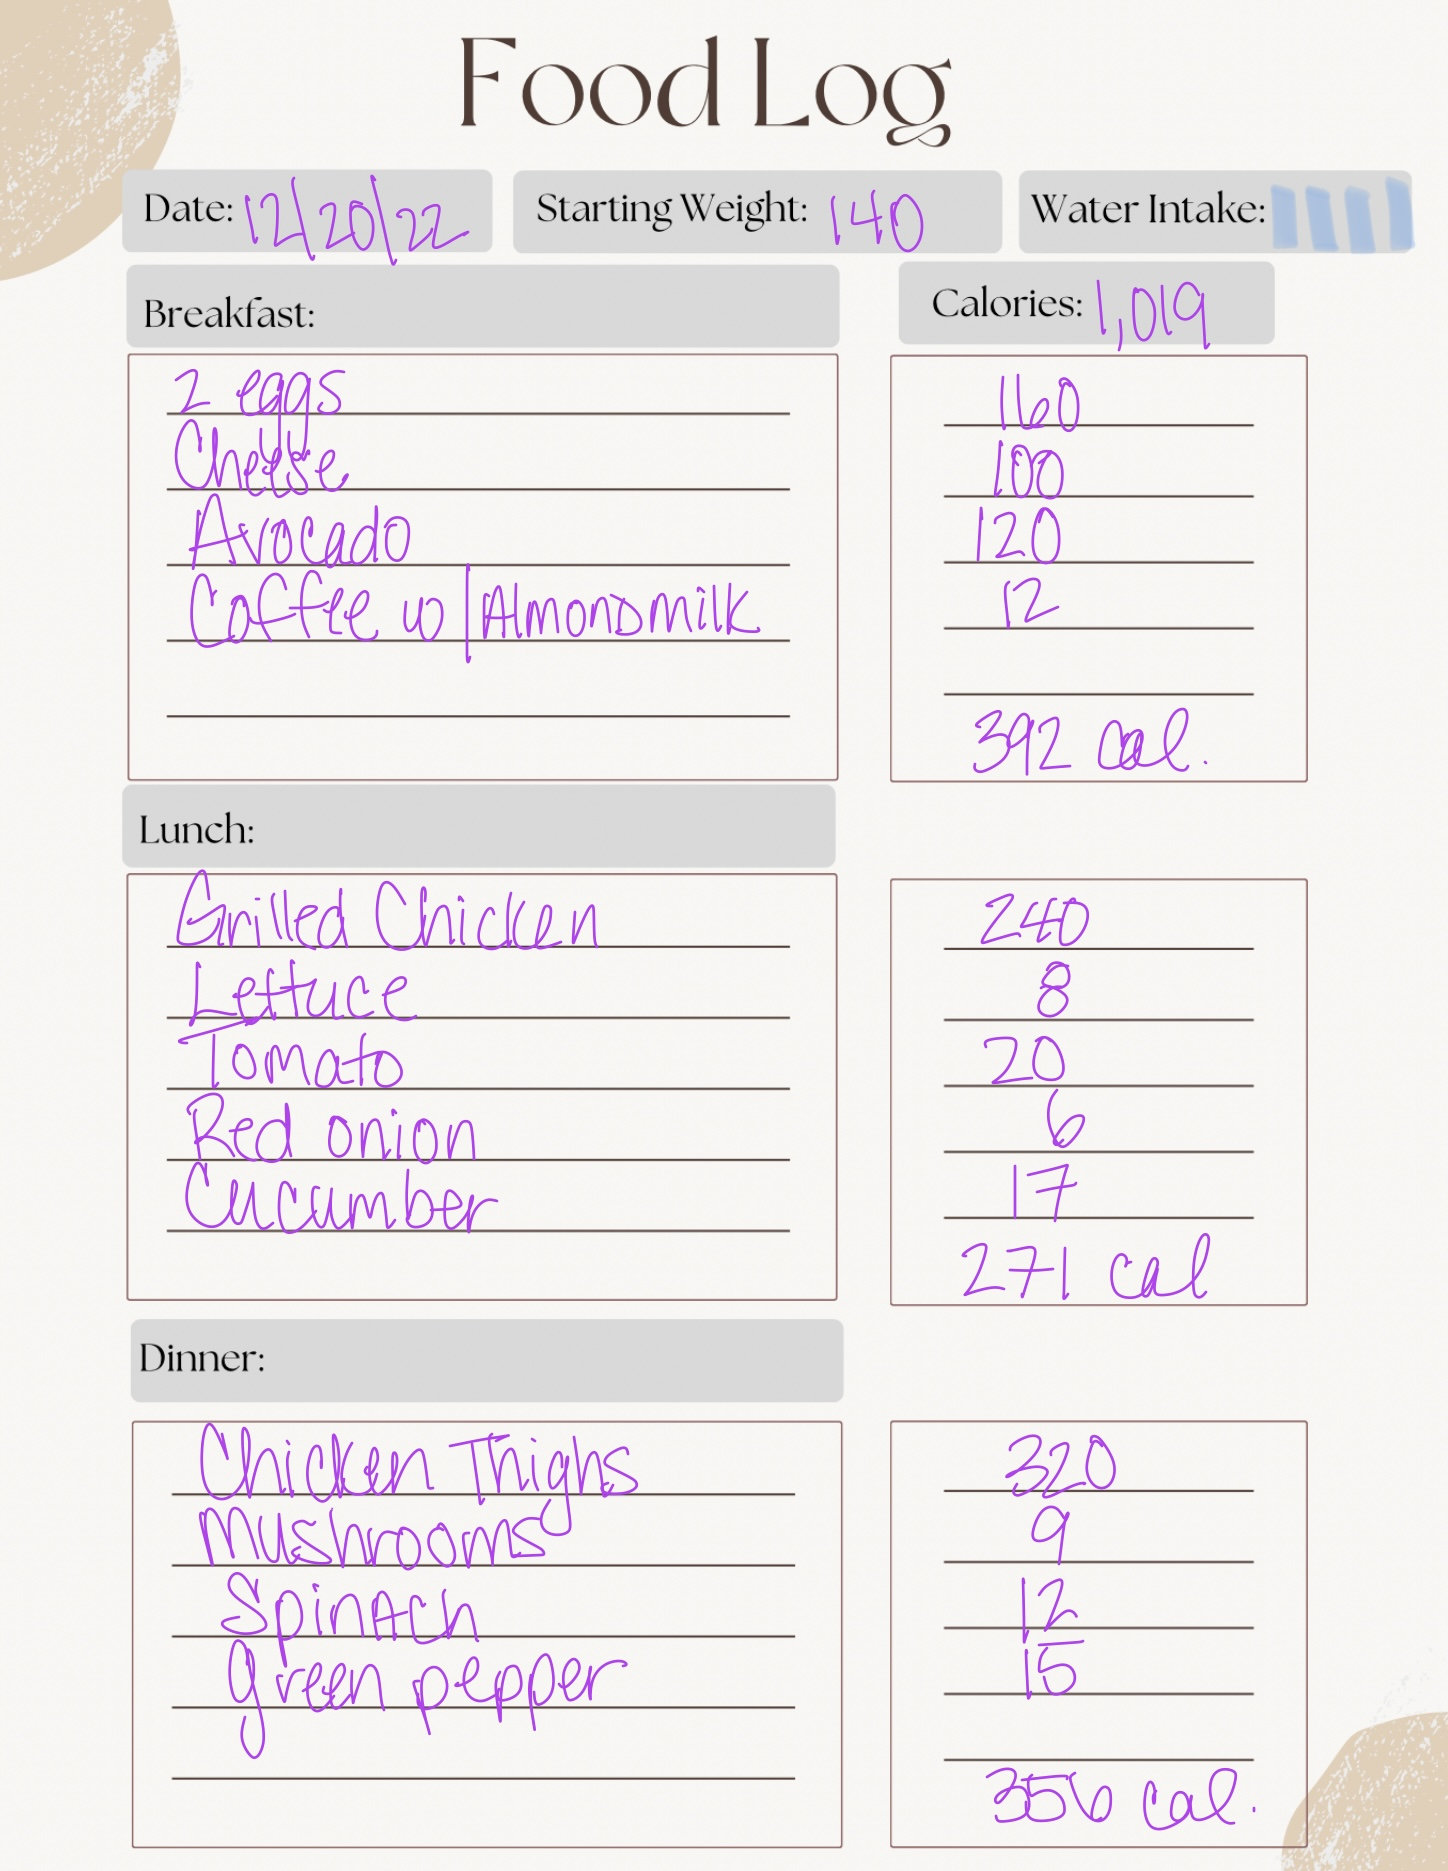 Food Log
Date: 12/20/22 Starting Weight: 140 Water Intake:
Breakfast: Calories: 1,019
2 eggs 160
Cheese 100
Avocado 120
Coffee w/Almondmilk 12
392 cal.
Lunch:
Grilled Chicken 240
Lettuce 8
Tomato 20
Red onion 6
Cucumber 17
271 cal
Dinner:
Chicken Thighs 320
Mushrooms 9
Spinach 12
green pepper 15
356 cal.